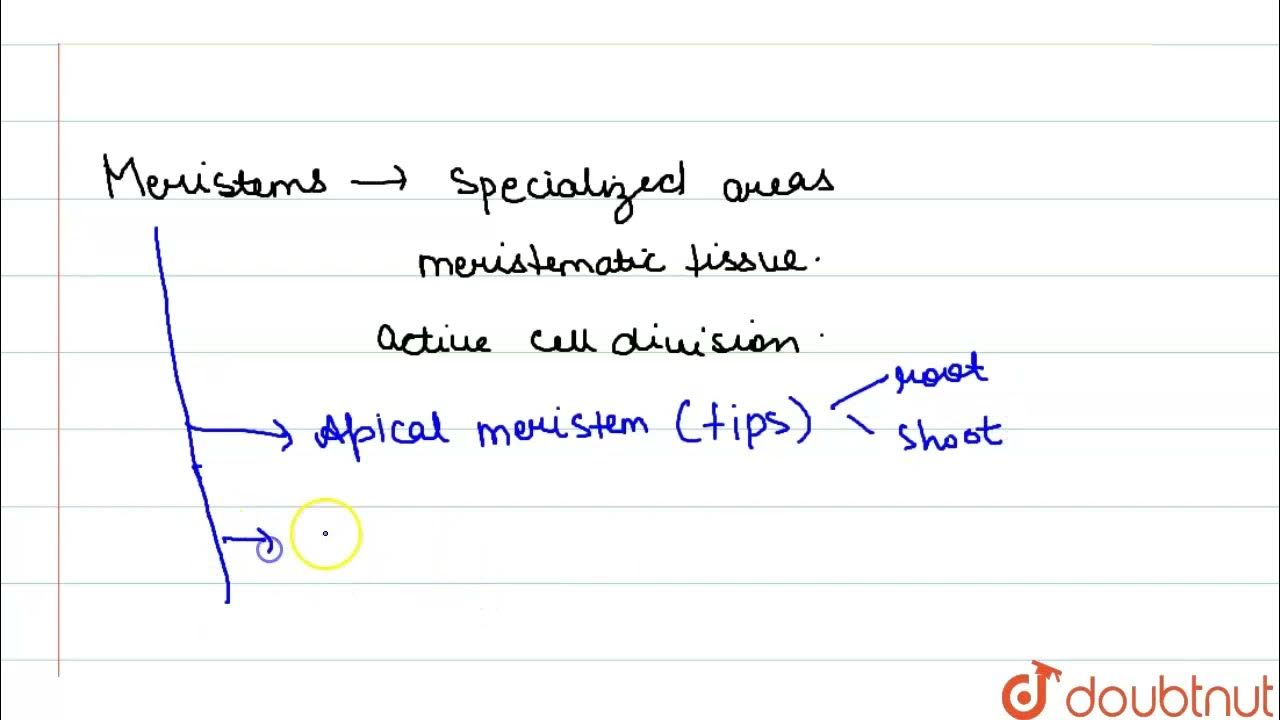 Meristems → Specialized areas
meristematic tissue.
Active cell division.
root
→ Apical meristem (tips)
shoot
→
doubtnut